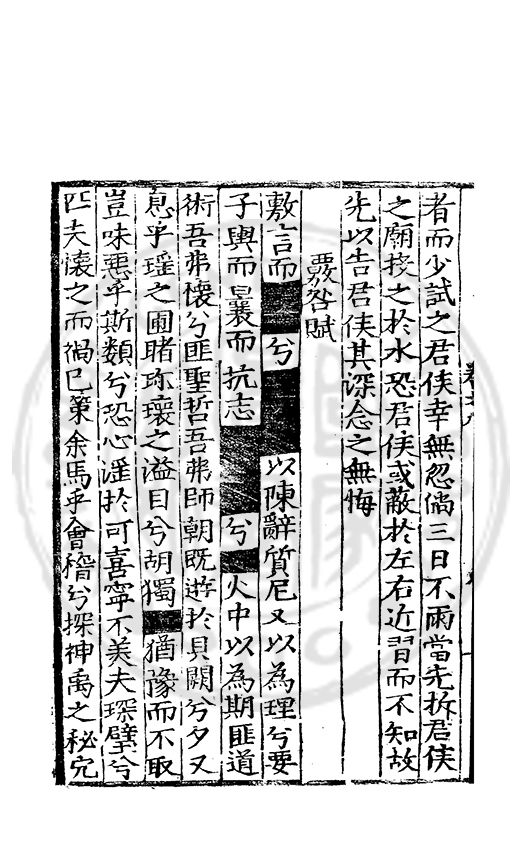 者而少試之君侯幸無忽倘三日不雨當先拆君侯
之廟投之於水恐君侯或蔽於左右近習而不知故
先以告君侯其深念之無悔
覈咎賦
敷言而兮以陳辭質尼又以為理兮要
子輿而曩而抗志兮火中以為期匪道
術吾弗懷兮匪聖哲吾弗師朝既遊於具闕兮夕又
息乎瑶之圃睹珎瓌之溢目兮胡獨猶豫而不取
豈味惡乎斯類兮恐心滛於可喜寜不羙夫琛璧兮
匹夫懷之而禍巳策余馬乎會稽兮探神禹之秘宂